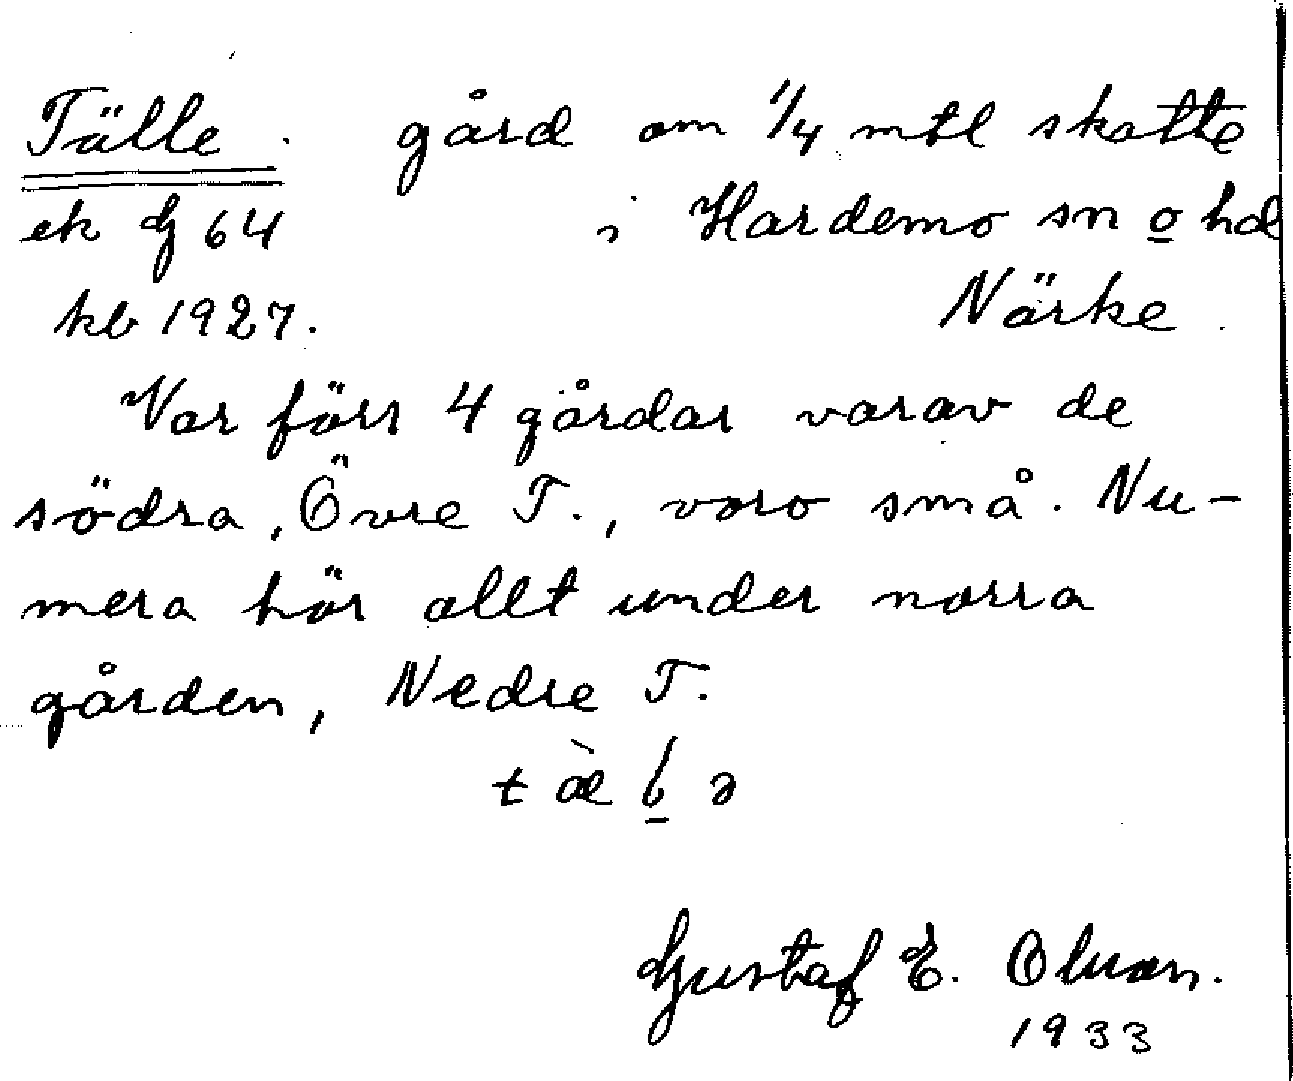 Tälle. gård om 1/4 mtl skatte
ek dj 64 i Hardemo sn o hd
kb 1927. Närke.
Var förr 4 gårdar varav de
södra, Övre T., voro små. Nu-
mera hör allt under norra
gården, Nedre T.
Gustaf E. Olsson.
1933